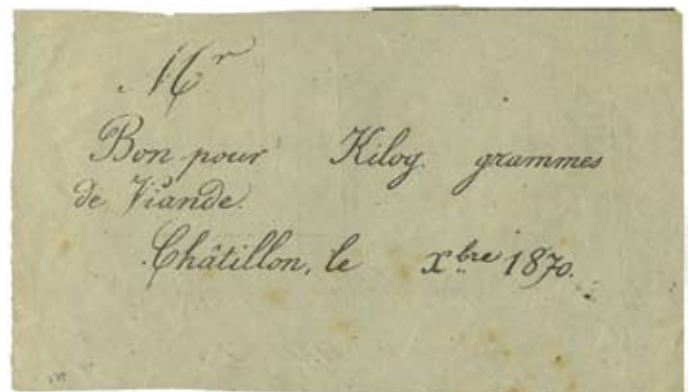 Mr
Bon pour Kilog. grammes
de Viande.
Châtillon, le xbre 1870.